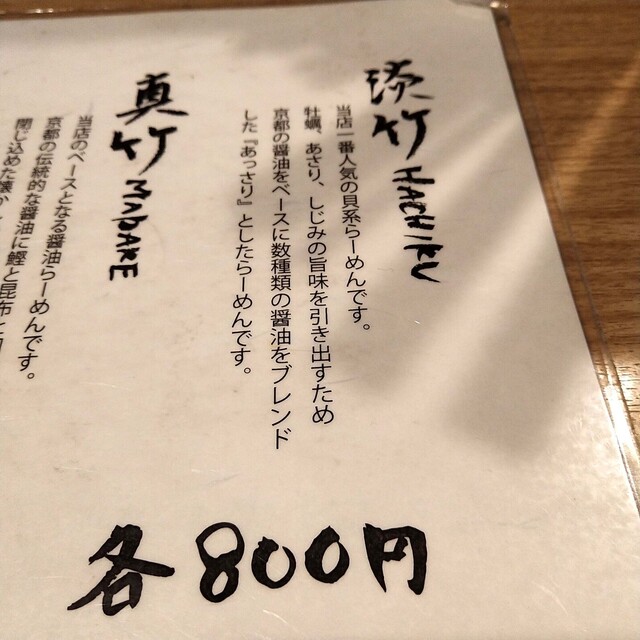 淡竹 HACHIKU
当店一番人気の貝系らーめんです。
牡蠣、あさり、しじみの旨味を引き出すため
京都の醤油をベースに数種類の醤油をブレンド
した『あっさり』としたらーめんです。
真竹 MADAKE
当店のベースとなる醤油らーめんです。
京都の伝統的な醤油に鰹と昆布と
閉じ込めた懐か
各800円